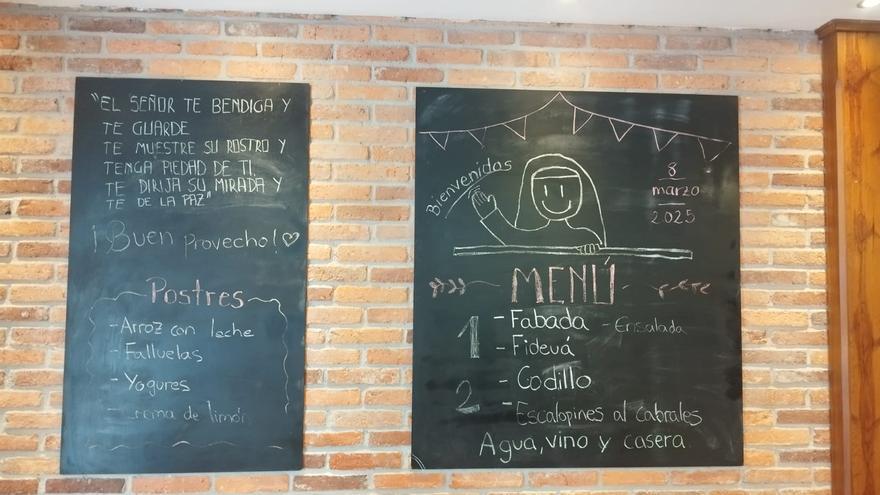 "EL SEÑOR TE BENDIGA Y
TE GUARDE
TE MUESTRE SU ROSTRO Y
TENGA PIEDAD DE TI,
TE DIRIJA SU MIRADA Y
TE DE LA PAZ"
¡Buen Provecho!
Postres
-Arroz con leche
-Falluelas
-Yogures
-Crema de limón
Bienvenidos
8
marzo
2025
MENÚ
1 -Fabada -Ensalada
-Fideuá
2 -Codillo
-Escalopines al cabrales
Agua, vino y casera